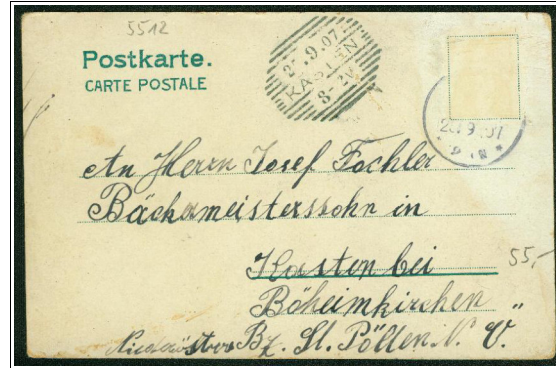 5512
Postkarte.
CARTE POSTALE
9.07
KASTEN
8-
9.07
An Herrn Josef Fochler
Bäckermeisterssohn in
Kasten bei
55,-
Böheimkirchen
Bz. St. Pölten. N. Ö.